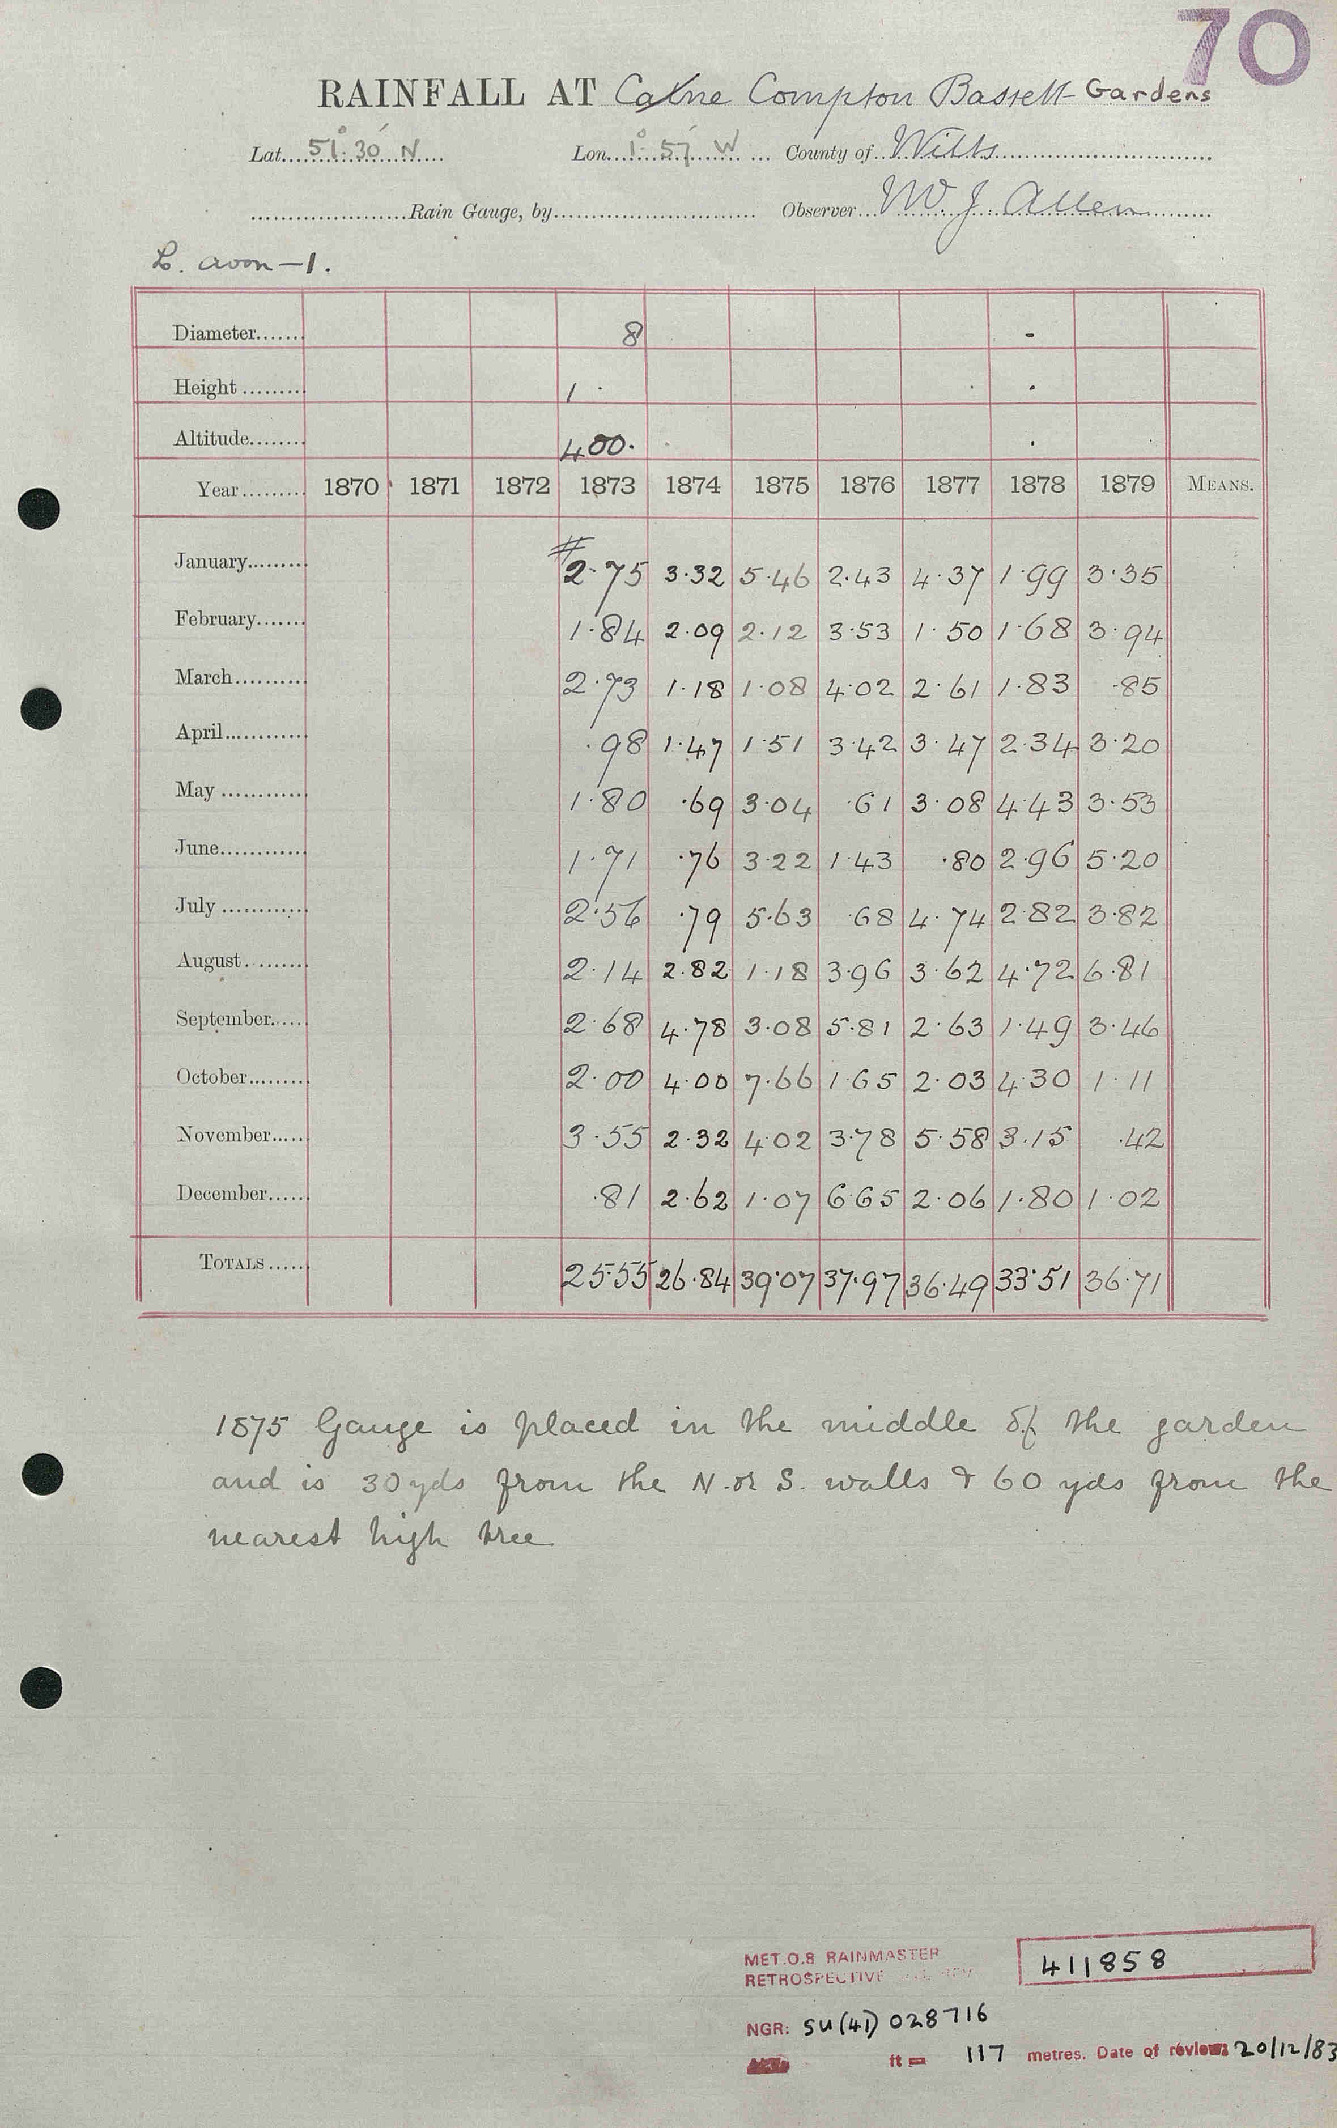 70
RAINFALL AT Calne Compton Bassett Gardens
Lat. 51° 30' N Lon. 1° 57' W County of Wilts
Rain Gauge, by Observer W J Allen
L. Avon—1.
Diameter 8 -
Height 1 · ·
Altitude 400. ·
Year 1870 1871 1872 1873 1874 1875 1876 1877 1878 1879 MEANS.
#
January 2.75 3.32 5.46 2.43 4.37 1.99 3.35
February 1.84 2.09 2.12 3.53 1.50 1.68 3.94
March 2.73 1.18 1.08 4.02 2.61 1.83 .85
April .98 1.47 1.51 3.42 3.47 2.34 3.20
May 1.80 .69 3.04 .61 3.08 4.43 3.53
June 1.71 .76 3.22 1.43 .80 2.96 5.20
July 2.56 .79 5.63 .68 4.74 2.82 3.82
August 2.14 2.82 1.18 3.96 3.62 4.72 6.81
September 2.68 4.78 3.08 5.81 2.63 1.49 3.46
October 2.00 4.00 7.66 1.65 2.03 4.30 1.11
November 3.55 2.32 4.02 3.78 5.58 3.15 .42
December .81 2.62 1.07 6.65 2.06 1.80 1.02
TOTALS 25.55 26.84 39.07 37.97 36.49 33.51 36.71
1875 Gauge is placed in the middle of the garden
and is 30 yds from the N. or S. walls & 60 yds from the
nearest high tree
MET.O.8 RAINMASTER
RETROSPECTIVE
411858
NGR: SU(41) 028716
ft = 117 metres. Date of review: 20/12/83